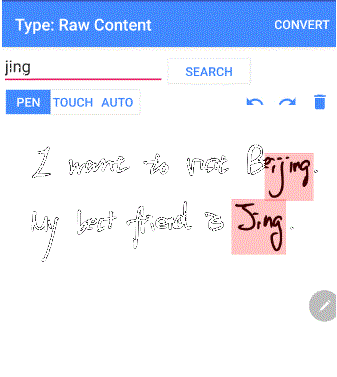 Type: Raw Content CONVERT
jing SEARCH
PEN TOUCH AUTO
I want to visit Beijing.
My best friend is Jing.